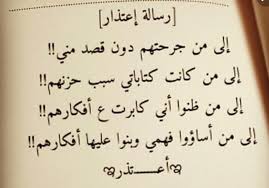 [رسالة إعتذار]
إلى من جرحتهم دون قصد مني!!
إلى من كانت كتاباتي سبب حزنهم!!
إلى من ظنوا أني كابرت ع أفكارهم!!
إلى من أساؤوا فهمي وبنوا عليها أفكارهم!!
أعـــتذر